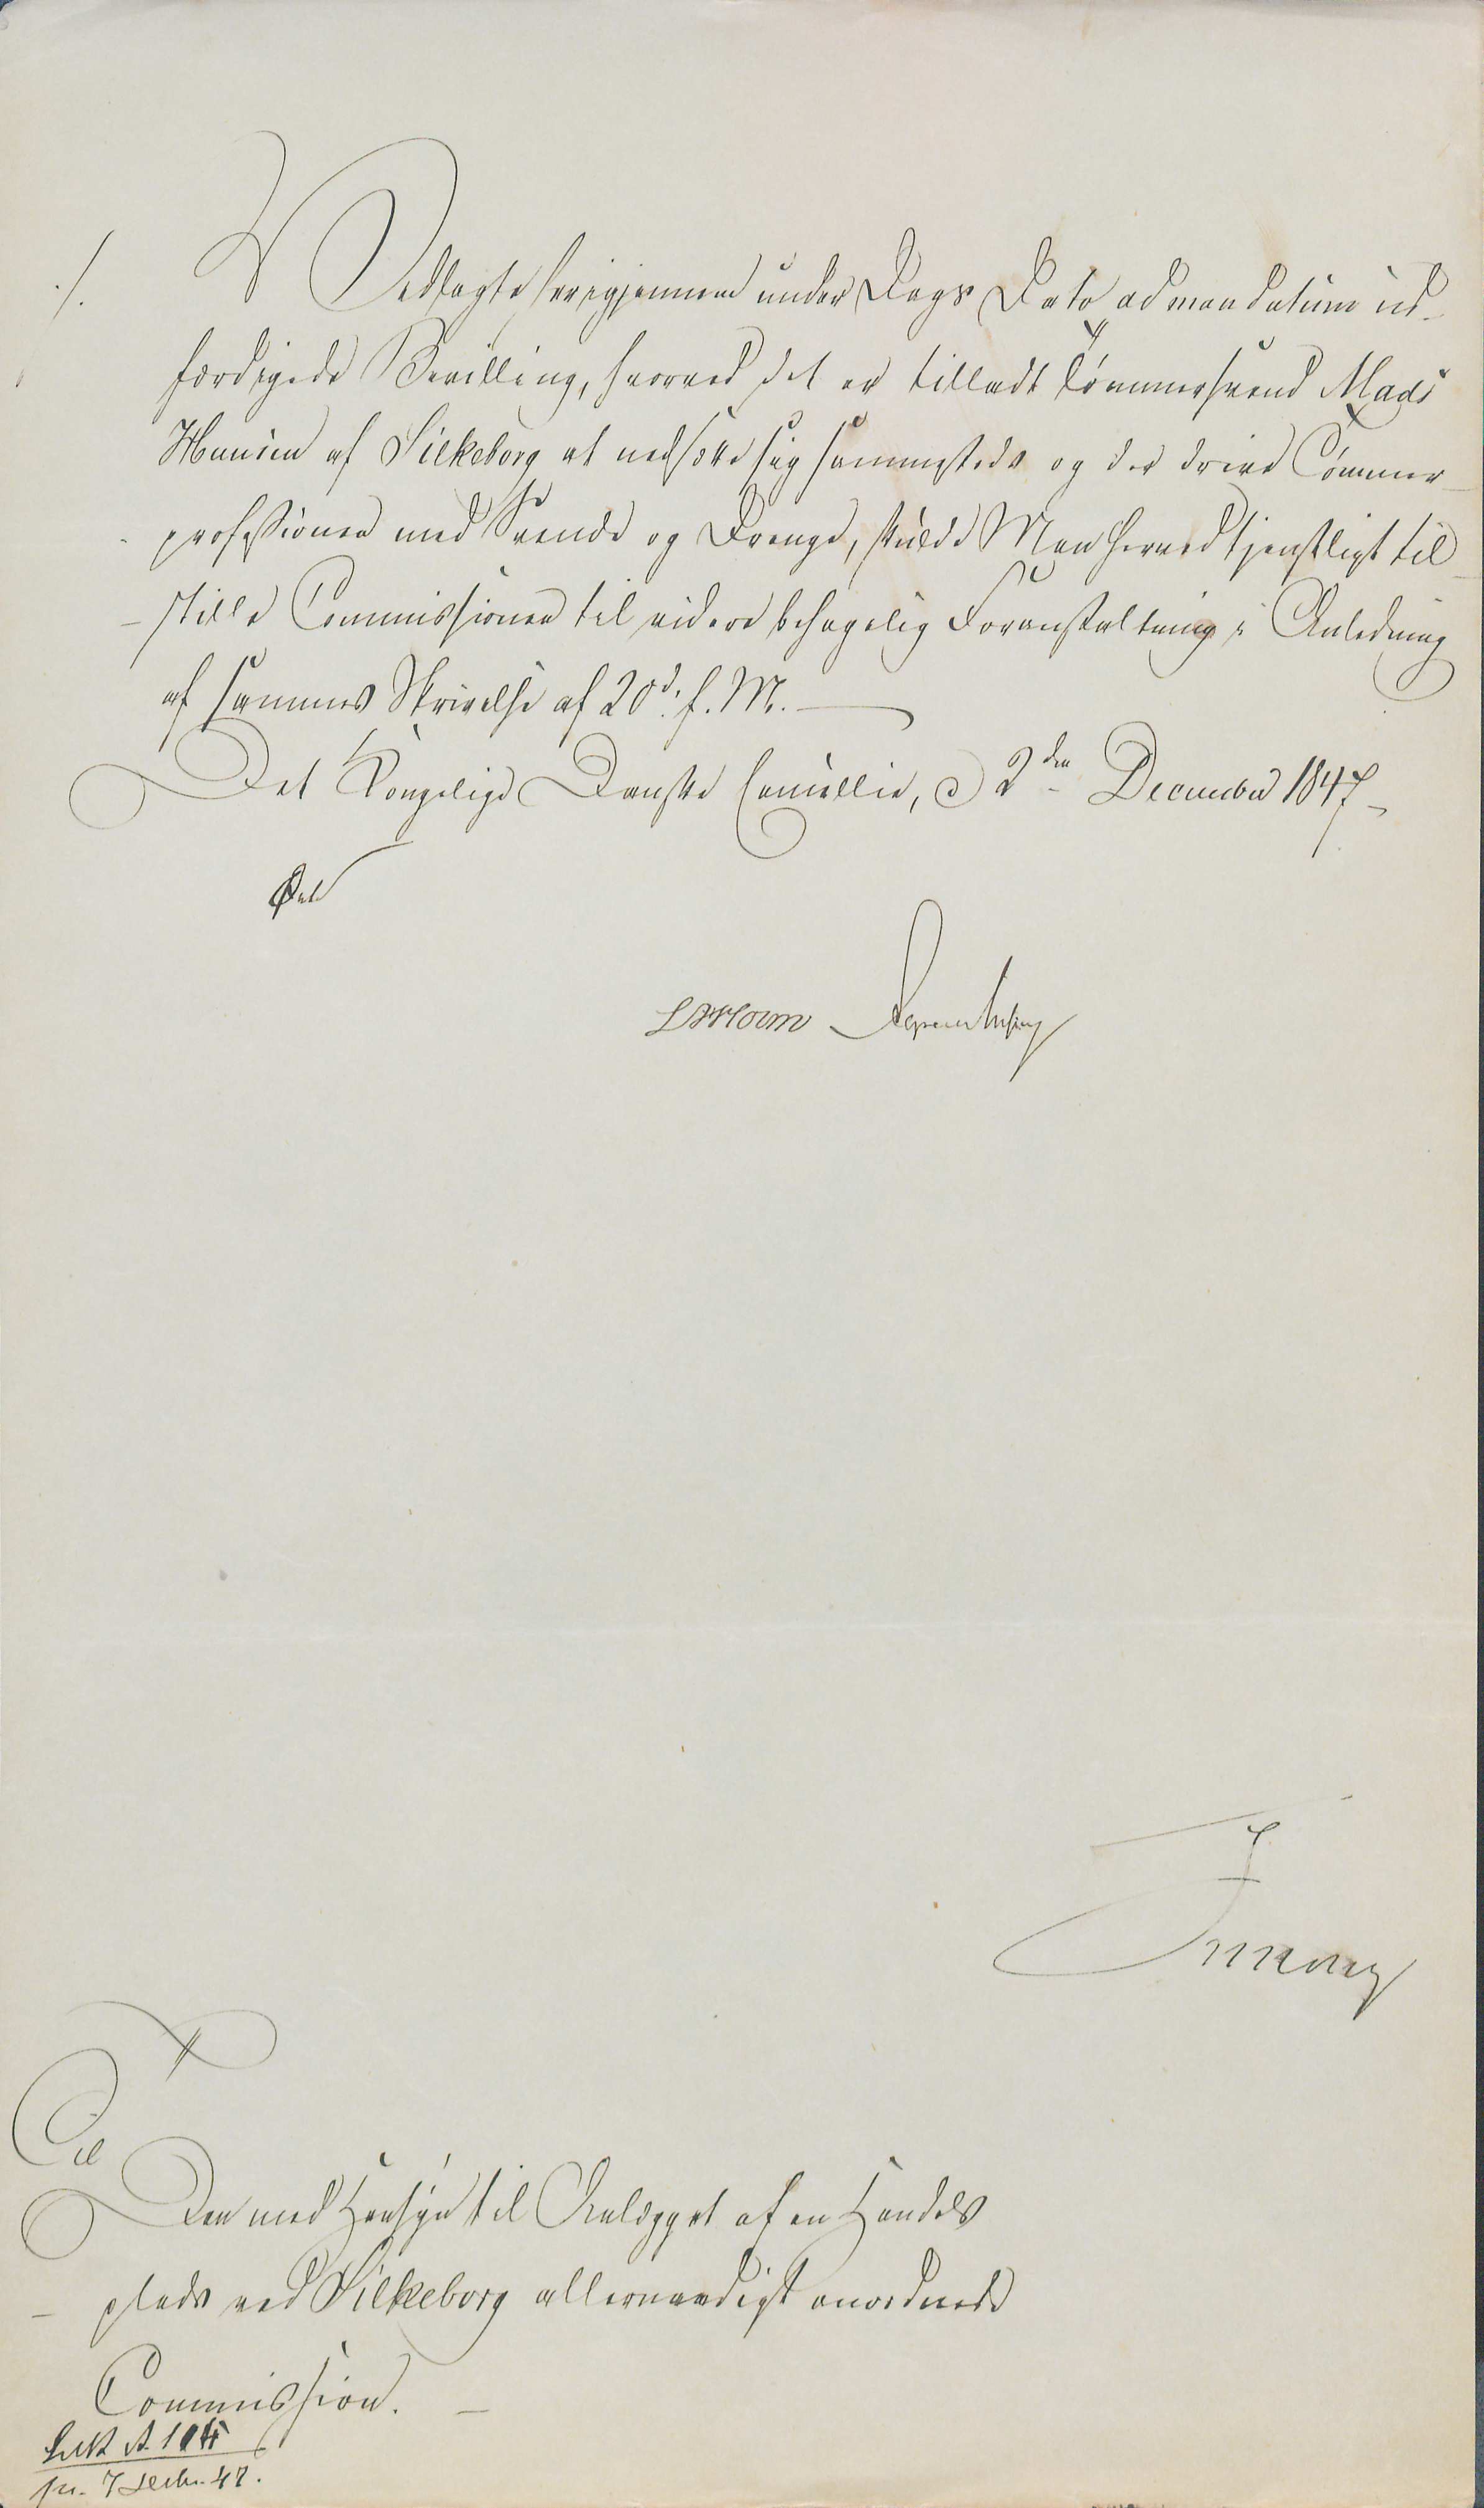 ./.
Vedlagte herigjennem under Dags Dato ad mandatum ud-
færdigede Bevilling, hvorved det er tilladt Tømmersvend Mads
Hansen af Silkeborg at nedsætte sig sammesteds og der drive Tømmer-
professionen med Svende og Drenge, skulde Man herved tjenstligt til-
stille Commissionen til videre behagelig Foranstaltning i Anledning
af sammes Skrivelse af 20d. f. M.
Det Kongelige Danske Cancellie, d 2den December 1847
Til
Den med Hensyn til Anlægget af en Handels
plads ved Silkeborg allernaadigst anordnede
Commission.
pr. 7 Decbr. 47.